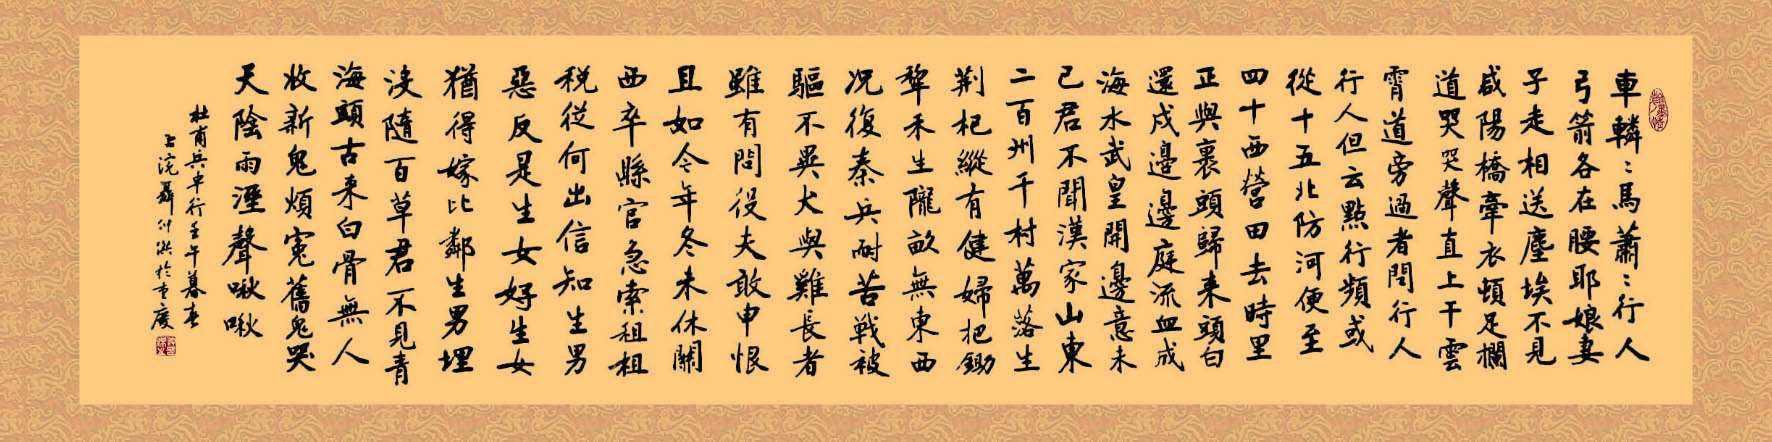 車轔〻馬蕭〻行人
弓箭各在腰耶娘妻
子走相送塵埃不見
咸陽橋牽衣頓足欄
道哭哭聲直上干雲
霄道旁過者問行人
行人但云點行頻或
從十五北防河便至
四十西營田去時里
正與裹頭歸来頭白
還戍邊邊庭流血成
海水武皇開邊意未
已君不聞漢家山東
二百州千村萬落生
荆杞縱有健婦把鋤
犂禾生隴畝無東西
况復秦兵耐苦戰被
驅不異犬與雞長者
雖有問役夫敢申恨
且如今年冬未休關
西卒縣官急索租租
税從何出信知生男
惡反是生女好生女
猶得嫁比鄰生男埋
没隨百草君不見青
海頭古来白骨無人
收新鬼煩寃舊鬼哭
天陰雨溼聲啾啾
杜甫兵車行壬午暮春
上浣聶仲於重慶